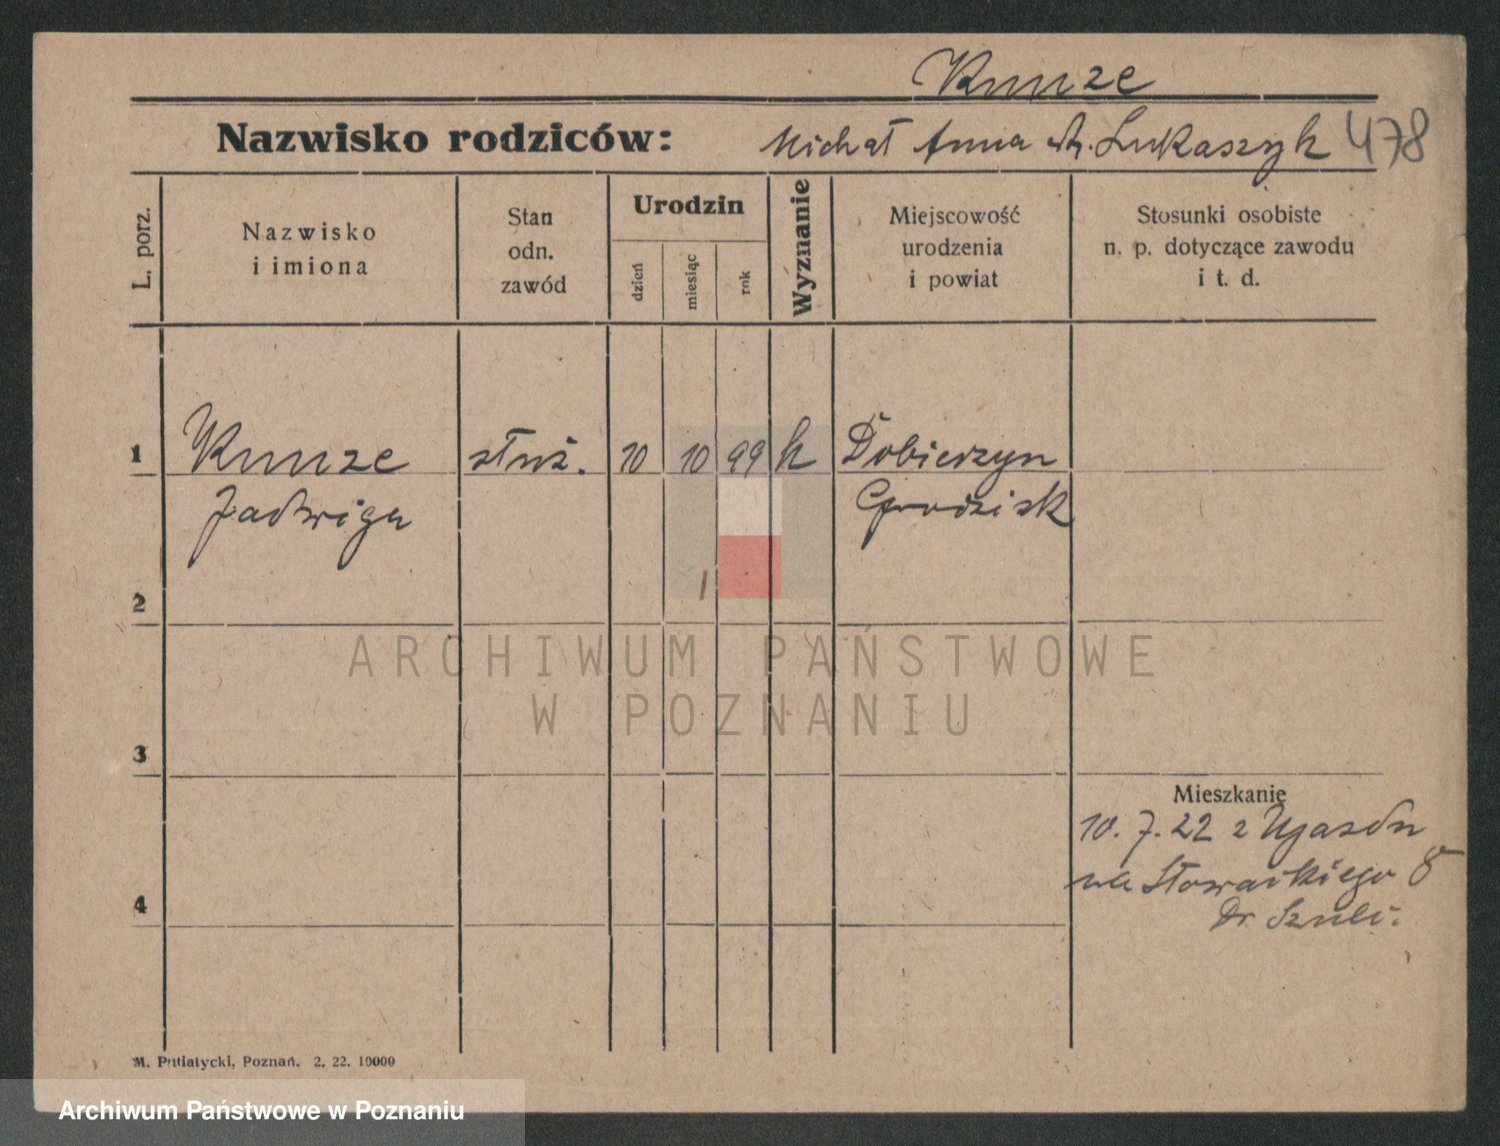 Kunze
Nazwisko rodziców: Michał Anna Łukaszyk 478
L. porz.
Nazwisko
i imiona
Stan
odn.
zawód
Urodzin
dzień
miesiąc
rok
Wyznanie
Miejscowość
urodzenia
i powiat
Stosunki osobiste
n. p. dotyczące zawodu
i t. d.
1 Kunze służ. 10 10 99 k Dobierzyn
Jadwiga Grodzisk
2
3
Mieszkanie
10. 7. 22 z Ujazdu
na Słowackiego 8
Dr. Szulc.
4
M. Putiatycki, Poznań. 2. 22. 10000
ARCHIWUM PAŃSTWOWE
W POZNANIU
Archiwum Państwowe w Poznaniu